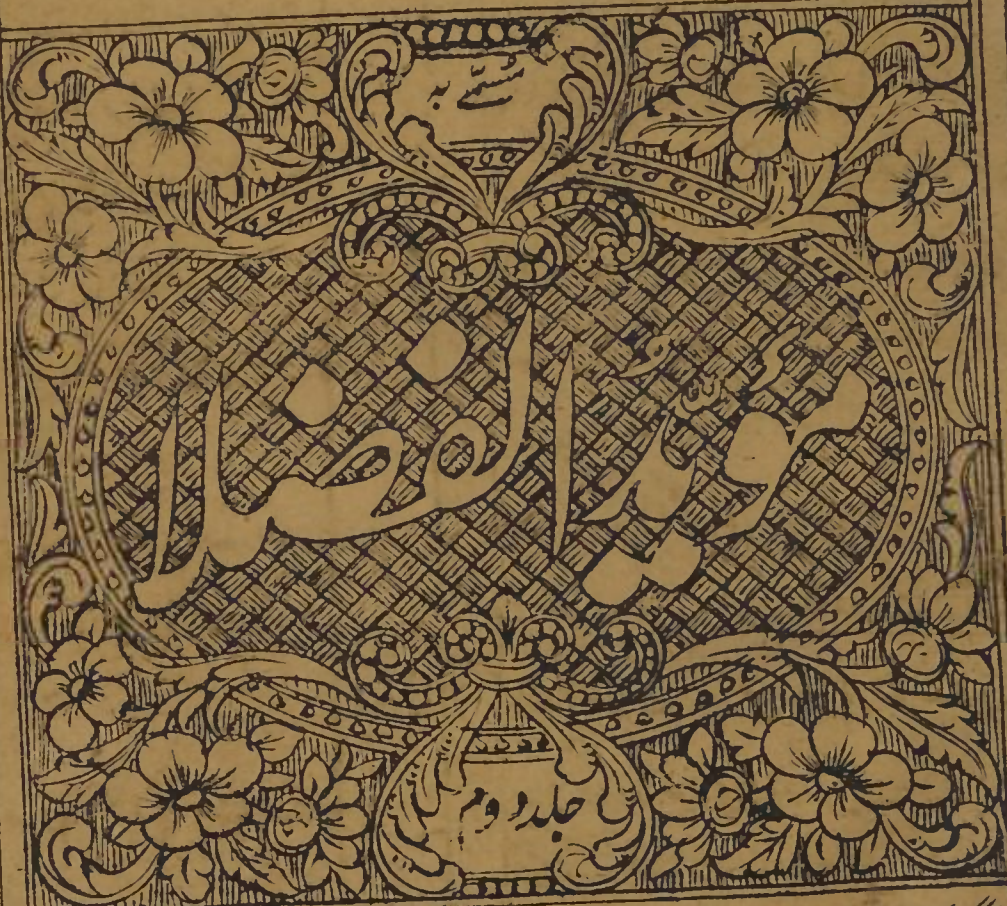 مسمّٰے بہ
مؤید الفضلا
جلد دوم